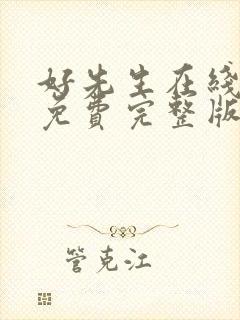 好先生在线
免费完整版
管克江